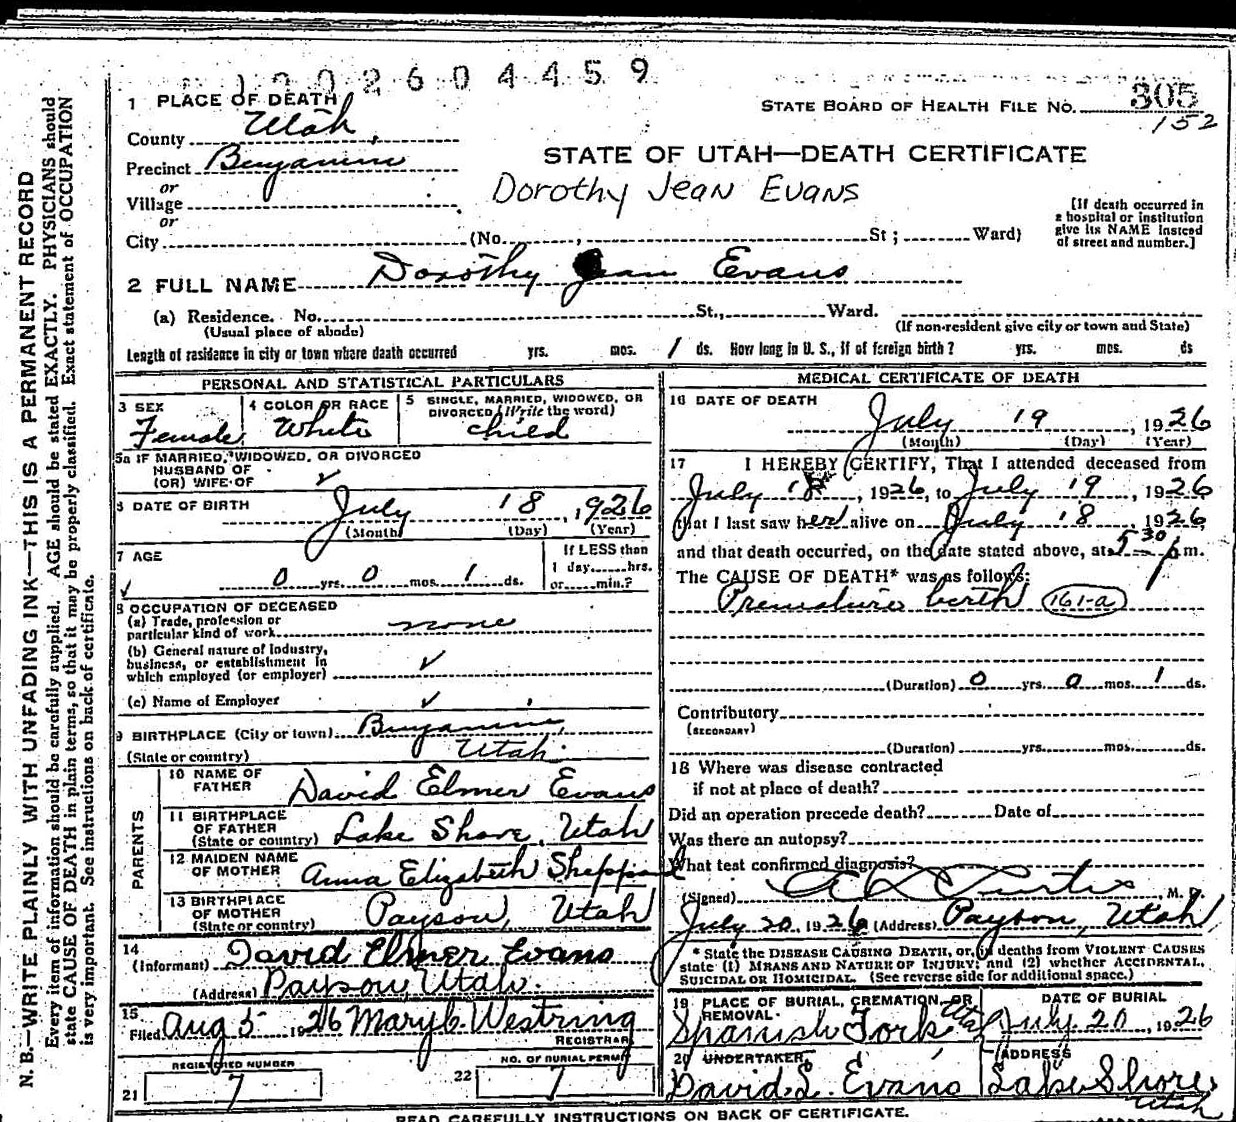 2604459
1 PLACE OF DEATH
STATE BOARD OF HEALTH FILE NO. 305
152
County Utah,
Precinct Benjamin
STATE OF UTAH—DEATH CERTIFICATE
or
Village
Dorothy Jean Evans
or
City (No. , St ; Ward)
[If death occurred in
a hospital or institution
give its NAME instead
of street and number.]
2 FULL NAME Dorothy Jean Evans
(a) Residence. No. St., Ward.
(Usual place of abode) (If non-resident give city or town and State)
Length of residence in city or town where death occurred yrs. mos. 1 ds. How long in U. S., if of foreign birth? yrs. mos. ds
PERSONAL AND STATISTICAL PARTICULARS
3 SEX
Female
4 COLOR OR RACE
White
5 SINGLE, MARRIED, WIDOWED, OR
DIVORCED (Write the word)
child
5a IF MARRIED, WIDOWED, OR DIVORCED
HUSBAND OF
(OR) WIFE OF
6 DATE OF BIRTH July 18, 1926
(Month) (Day) (Year)
7 AGE
0 yrs. 0 mos. 1 ds.
If LESS than
1 day......hrs.
or......min.?
8 OCCUPATION OF DECEASED
(a) Trade, profession or
particular kind of work none
(b) General nature of Industry,
business, or establishment in
which employed (or employer)
(c) Name of Employer
9 BIRTHPLACE (City or town) Benjamin,
(State or country) Utah.
PARENTS
10 NAME OF
FATHER David Elmer Evans
11 BIRTHPLACE
OF FATHER
(State or country) Lake Shore, Utah
12 MAIDEN NAME
OF MOTHER Anna Elizabeth Sheppard
13 BIRTHPLACE
OF MOTHER
(State or country) Payson, Utah
14
(Informant) David Elmer Evans
(Address) Payson Utah.
15
Filed Aug 5 1926 Mary Westring
REGISTRAR
REGISTERED NUMBER
21 7
NO. OF BURIAL PERMIT
22 1
MEDICAL CERTIFICATE OF DEATH
16 DATE OF DEATH
July 19, 1926
(Month) (Day) (Year)
17 I HEREBY CERTIFY, That I attended deceased from
July 18, 1926, to July 19, 1926
that I last saw her alive on July 18 1926,
and that death occurred, on the date stated above, at 5 30 p.m.
The CAUSE OF DEATH* was as follows:
Premature birth 161-a
(Duration) 0 yrs. 0 mos. 1 ds.
Contributory
(SECONDARY)
(Duration) yrs. mos. ds.
18 Where was disease contracted
if not at place of death?
Did an operation precede death? Date of
Was there an autopsy?
What test confirmed diagnosis?
(Signed) Curtis M. D.
July 20, 1926 (Address) Payson, Utah
* State the DISEASE CAUSING DEATH, or, in deaths from VIOLENT CAUSES
state (1) MEANS AND NATURE OF INJURY; and (2) whether ACCIDENTAL,
SUICIDAL OR HOMICIDAL. (See reverse side for additional space.)
19 PLACE OF BURIAL, CREMATION, OR
REMOVAL
Spanish Fork Utah
DATE OF BURIAL
July 20, 1926
20 UNDERTAKER
David L. Evans
ADDRESS
Lake Shore,
Utah
READ CAREFULLY INSTRUCTIONS ON BACK OF CERTIFICATE.
N. B.—WRITE PLAINLY WITH UNFADING INK—THIS IS A PERMANENT RECORD
Every item of information should be carefully supplied. AGE should be stated EXACTLY. PHYSICIANS should
state CAUSE OF DEATH in plain terms, so that it may be properly classified. Exact statement of OCCUPATION
is very important. See instructions on back of certificate.